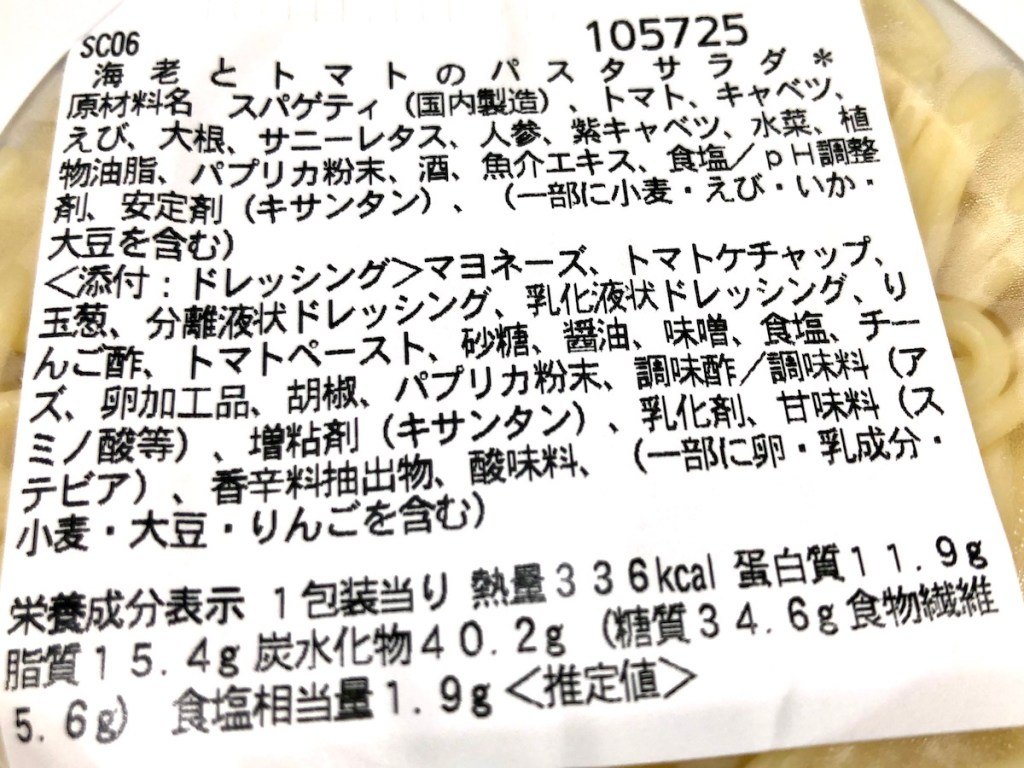 SC06 105725
海老とトマトのパスタサラダ*
原材料名 スパゲティ（国内製造）、トマト、キャベツ、
えび、大根、サニーレタス、人参、紫キャベツ、水菜、植
物油脂、パプリカ粉末、酒、魚介エキス、食塩／ｐＨ調整
剤、安定剤（キサンタン）、（一部に小麦・えび・いか・
大豆を含む）
＜添付：ドレッシング＞マヨネーズ、トマトケチャップ、
玉葱、分離液状ドレッシング、乳化液状ドレッシング、り
んご酢、トマトペースト、砂糖、醤油、味噌、食塩、チー
ズ、卵加工品、胡椒、パプリカ粉末、調味酢／調味料（ア
ミノ酸等）、増粘剤（キサンタン）、乳化剤、甘味料（ス
テビア）、香辛料抽出物、酸味料、（一部に卵・乳成分・
小麦・大豆・りんごを含む）
栄養成分表示 １包装当り 熱量３３６kcal 蛋白質１１．９g
脂質１５．４g 炭水化物４０．２g （糖質３４．６g 食物繊維
５．６g） 食塩相当量１．９g＜推定値＞